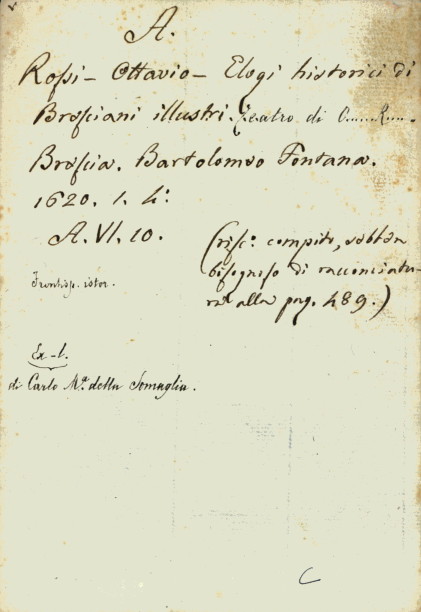 A.
Rossi - Ottavio - Elogi historici di
Bresciani illustri. Teatro di O.....R....
Brescia. Bartolomeo Fontana.
1620. 1. 4°:
A. VI. 10.
(risc.° compito, sebben
bisognoso di racconciatu-
ra alla pag. 489.)
Frontisp. istor.
Ex-l.
di Carlo M.ª della Somaglia.
C